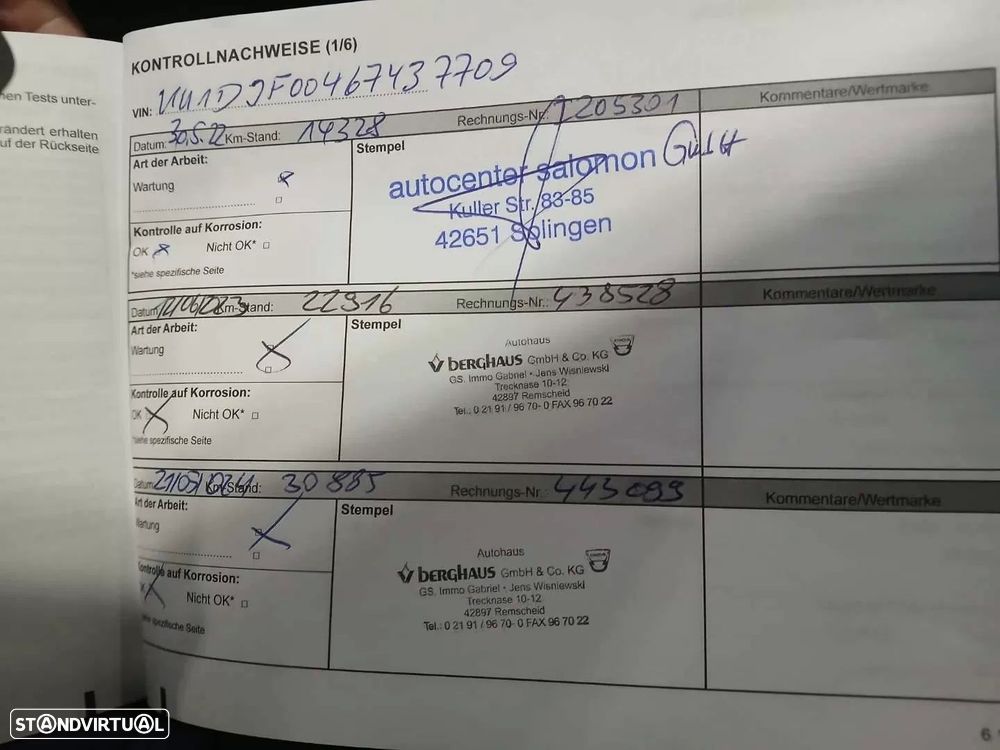 nen Tests unter-
rändert erhalten
uf der Rückseite
KONTROLLNACHWEISE (1/6)
VIN: UU1DJF00467437709
Datum: 30.5.22 Km-Stand: 14328 Rechnungs-Nr.: 1205301 Kommentare/Wertmarke
Art der Arbeit:
Wartung
Kontrolle auf Korrosion:
OK Nicht OK*
*siehe spezifische Seite
Stempel
autocenter salomon GmbH
Kuller Str. 83-85
42651 Solingen
Datum: 12/06/2023 Km-Stand: 22916 Rechnungs-Nr.: 438528 Kommentare/Wertmarke
Art der Arbeit:
Wartung
Kontrolle auf Korrosion:
OK Nicht OK*
*siehe spezifische Seite
Stempel
Autohaus
BERGHAUS GmbH & Co. KG
GS. Immo Gabriel • Jens Wisniewski
Trecknase 10-12
42897 Remscheid
Tel.: 0 21 91 / 96 70- 0 FAX 96 70 22
Datum: 21/05/2024 Km-Stand: 30885 Rechnungs-Nr.: 443099 Kommentare/Wertmarke
Art der Arbeit:
Wartung
Kontrolle auf Korrosion:
Nicht OK*
siehe spezifische Seite
Stempel
Autohaus
BERGHAUS GmbH & Co. KG
GS. Immo Gabriel • Jens Wisniewski
Trecknase 10-12
42897 Remscheid
Tel.: 0 21 91 / 96 70- 0 FAX 96 70 22
6
STANDVIRTUAL